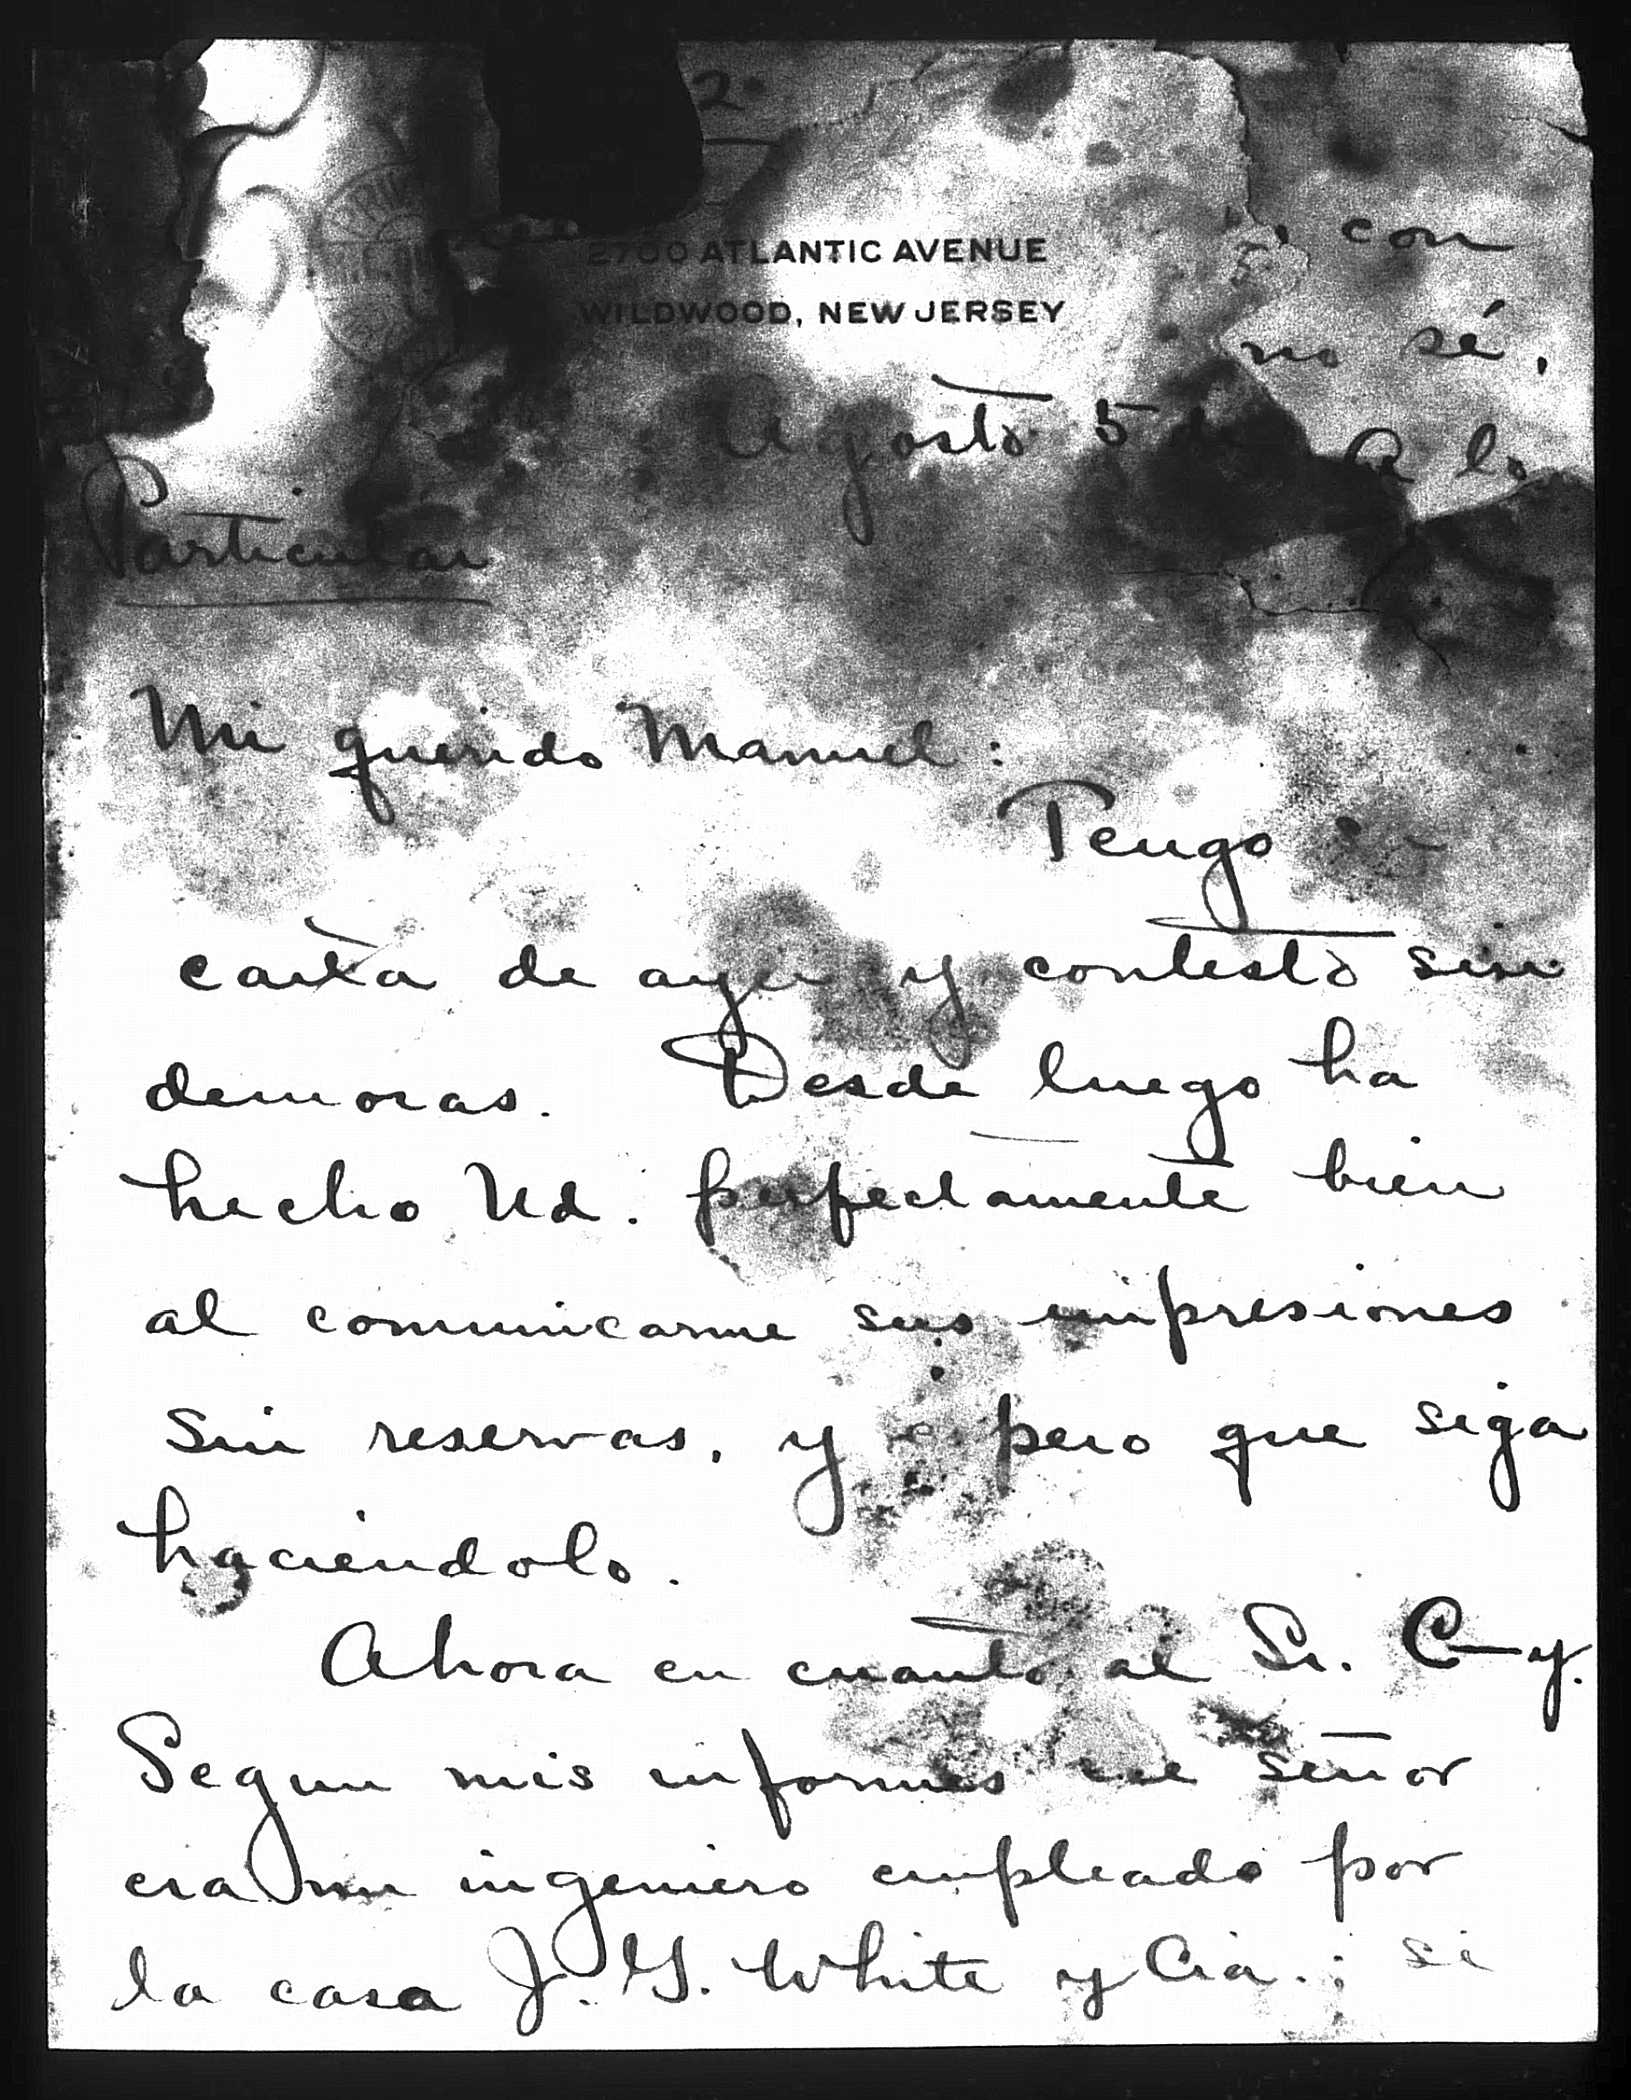 2.
2700 ATLANTIC AVENUE
WILDWOOD, NEW JERSEY
con
no sé,
a lo
Agosto 5 de
Particular
Mi querido Manuel:
Tengo su
carta de ayer y contesto sin
demoras. Desde luego ha
hecho Ud. perfectamente bien
al comunicarme sus impresiones
sin reservas, y espero que siga
haciéndolo.
Ahora en cuanto al Sr. C—y.
Segun mis informes ese señor
era un ingeniero empleado por
la casa J. G. White y Cia.; si